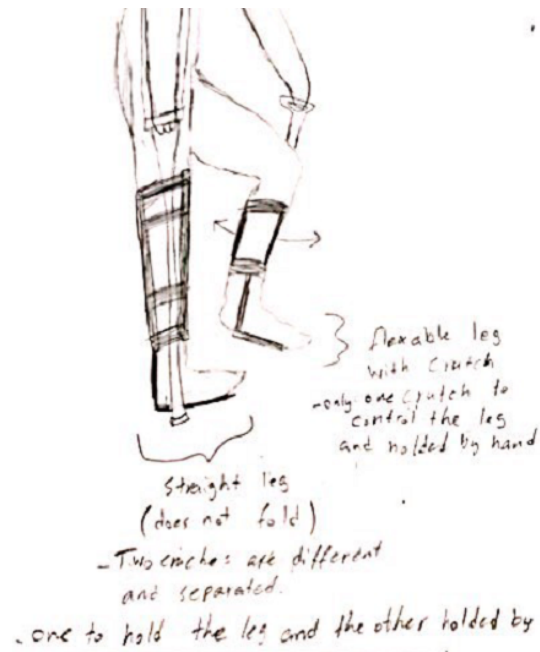 flexable leg
with crutch
- only one crutch to
control the leg
and holded by hand
straight leg
(does not fold)
- Two cruches are different
and separated.
- one to hold the leg and the other holded by